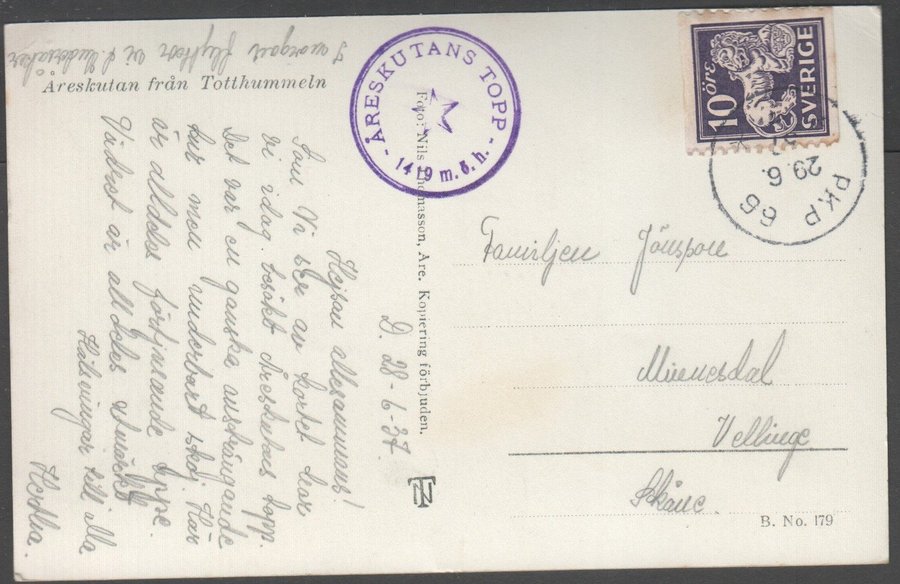 I morgon flyttar vi t. Undersåker
Åreskutan från Totthummeln
D. 28-6-37.
Hejsan allesammans!
Som Vi ser av kortet har
vi idag besökt Åreskutans topp.
Det var en ganska ansträngande
tur men underbart skoj. Här
är alldeles förtjusande uppe.
Vädret är alldeles utmärkt
Hälsningar till alla
Hertha.
ÅRESKUTANS TOPP
- 1419 m.ö.h. -
Foto: Nils Thomasson, Åre. Kopiering förbjuden.
NT
10 öre
SVERIGE
PKP 66
29.6.
Familjen Jönsson
Minnesdal
Vellinge
Skåne
B. No. 179